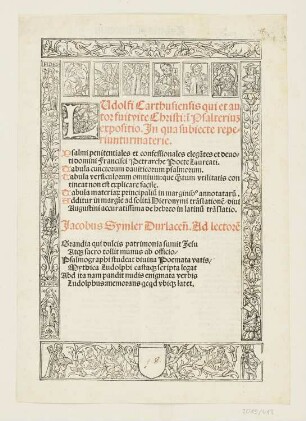 LUdolfi Carthusiensis qui et au
tor fuit vite Christi: I Psalteriũ
expositio. In qua subiecte repe
riuntur materie.
Psalmi penitentiales et confessionales elegãtes et deuo
ti domini Francisci Petrarche Poete Laureati.
Tabula cunctorum dauiticorum psalmorum.
Tabula versiculorum omnium: que q̃tum vtilitatis con
tineat non est explicare facile.
Tabula materiar̃ principaliũ in marginib⁹ annotatarũ.
Additur in margie ad solita Hieronymi trãslatiõe, diui
Augustini accuratissima de hebreo in latinũ trãslatio.
Jacobus Symler Durlaceñ. Ad lectorẽ
Grandia qui dulcis patrimonia sumit Jesu
Atq; sacro tollit munus ab officio/
Psalmographi studeat diuina Poemata vatis/
Mythica Ludolphi castaq; scripta legat
Abdita nam pandit nitidis enigmata verbis
Ludolphus memorans qcqd vbiq; latet.